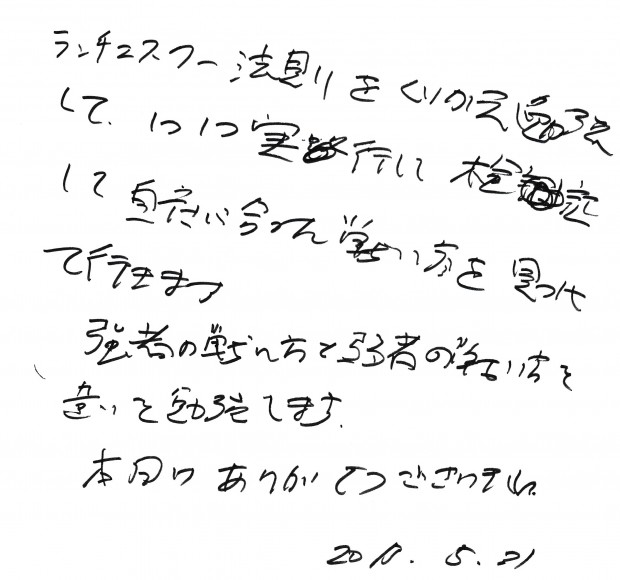 ランチェスター法則をくりかえ勉強
して、1つ1つ実行して検証
して自社に合った戦い方を見つけ
て行きます
強者の戦い方と弱者の戦い方を
違いを勉強してます。
本日はありがとうございました。